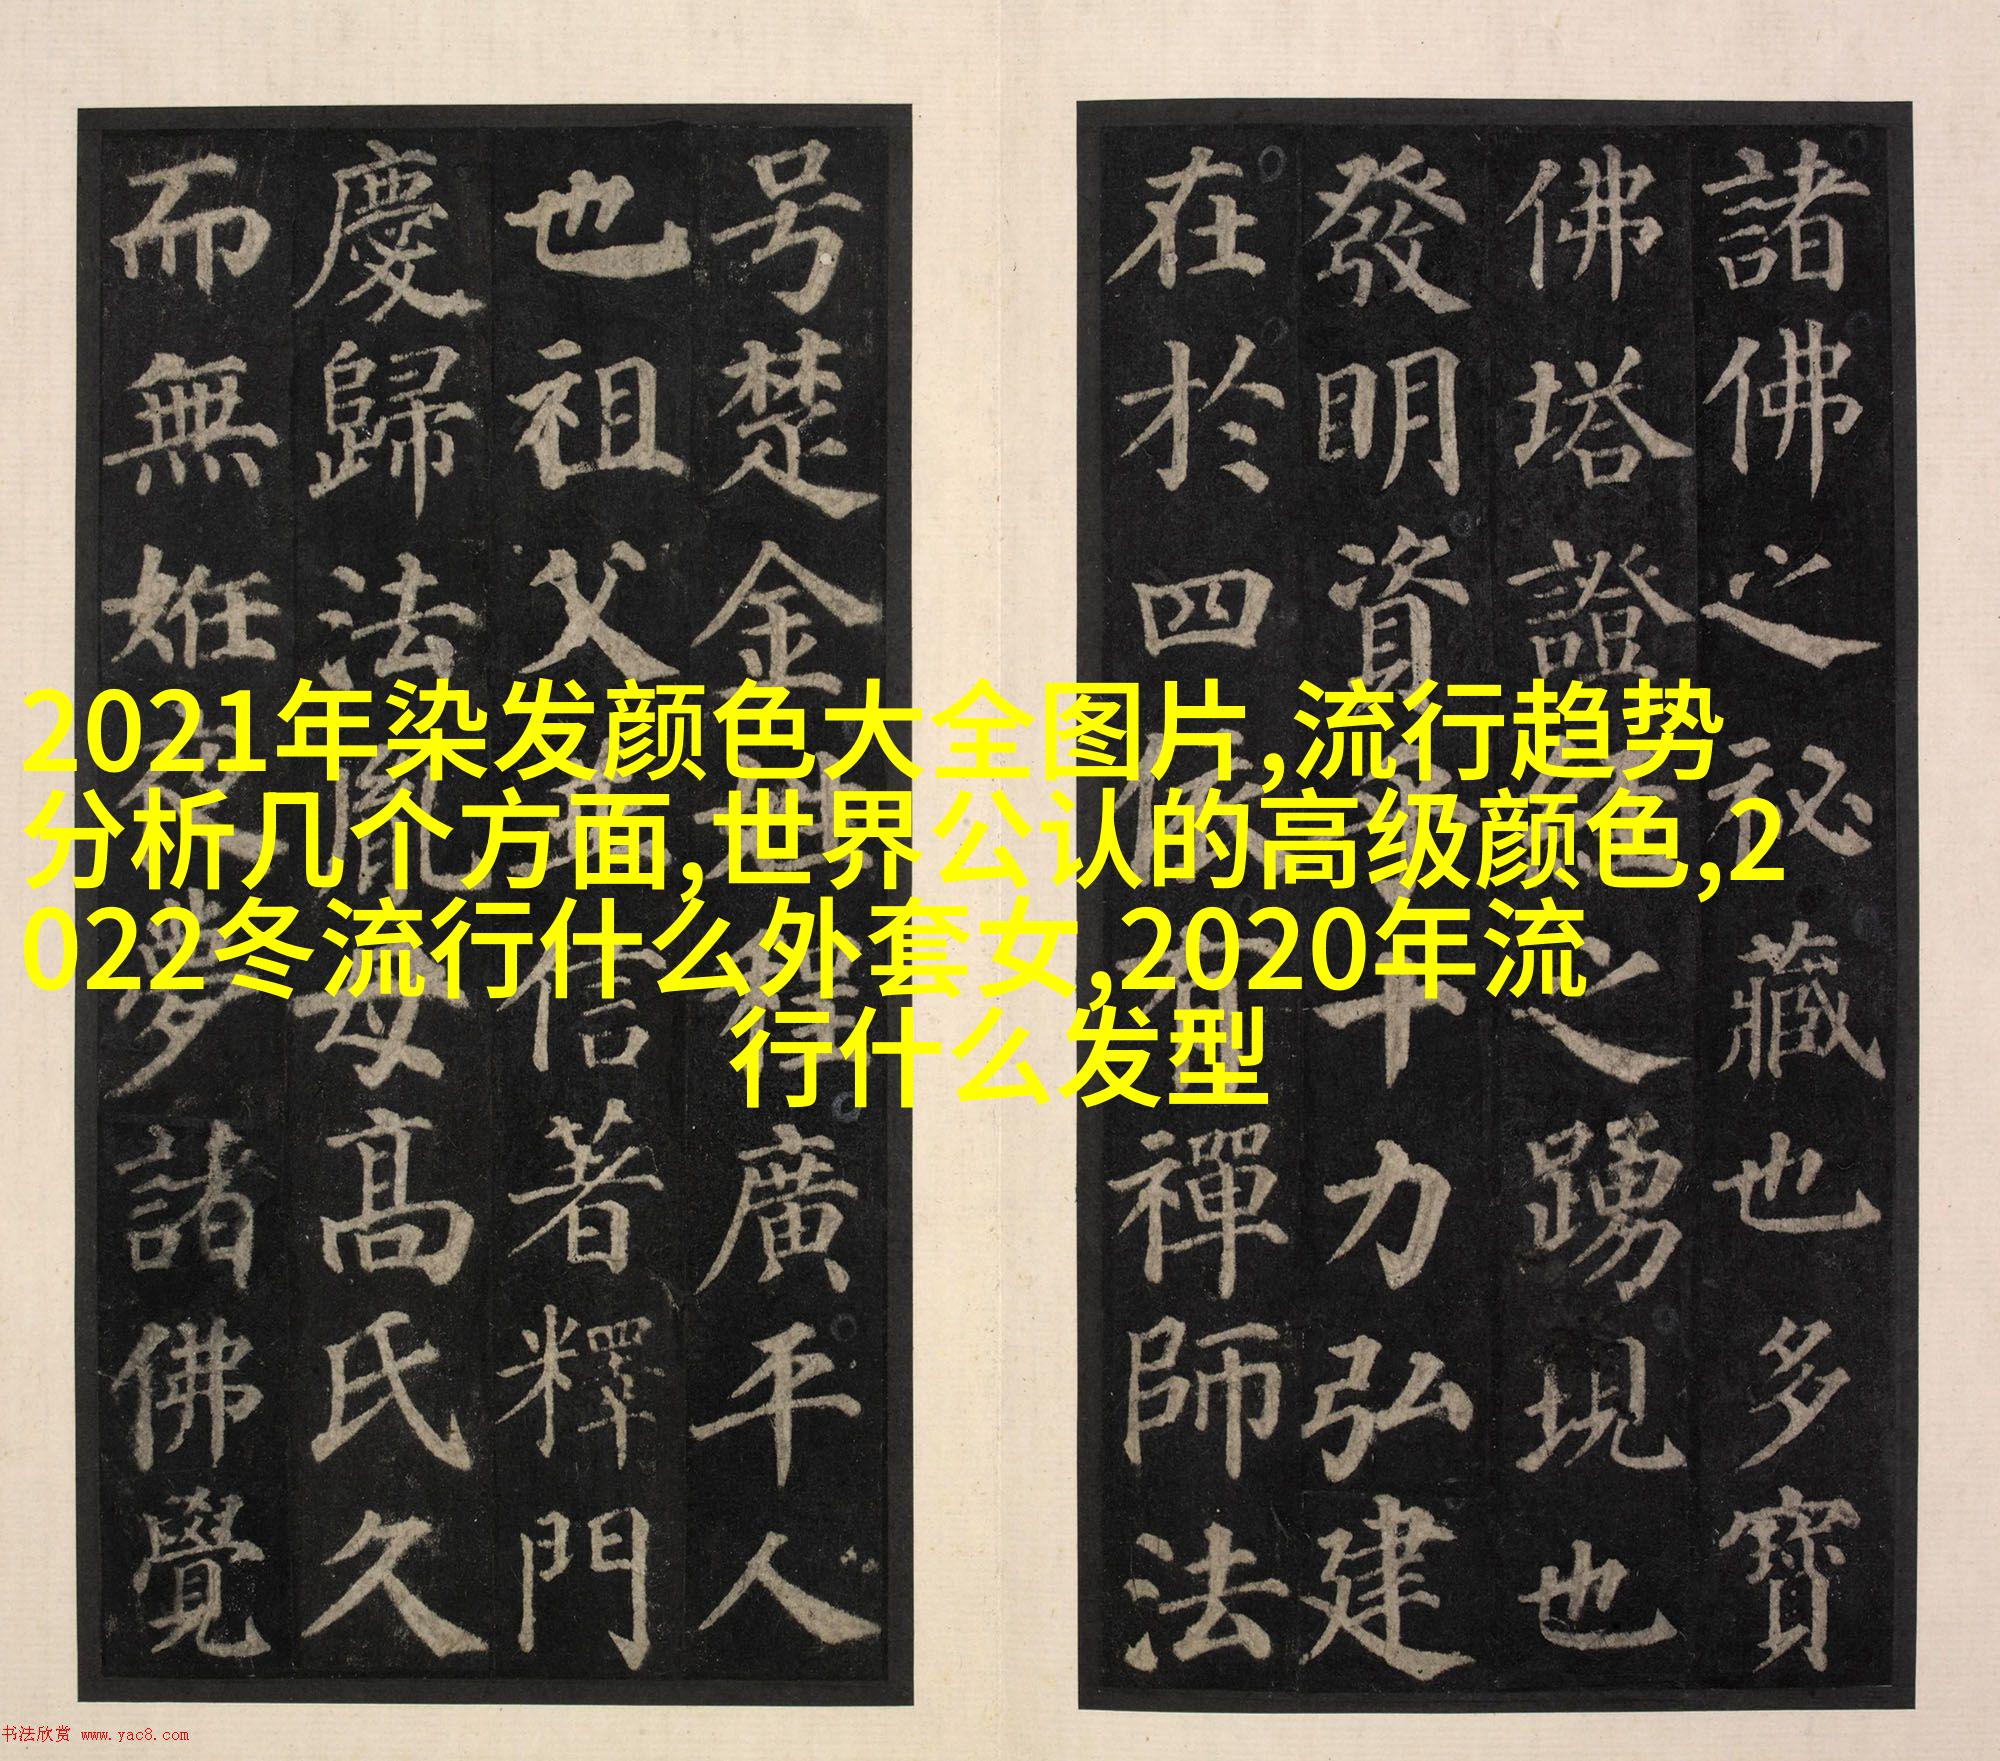 諸佛之祕藏也多寶
佛塔證之踴現也
發明資十力弘建
在於四依有禪師法
号楚金姓程廣平人
也祖父信著釋門
慶歸法胤母高氏久
而無姙夜夢諸佛覺
2021年染发颜色大全图片,流行趋势
分析几个方面,世界公认的高级颜色,2
022冬流行什么外套女,2020年流
行什么发型
书法欣赏 www.yac8.com